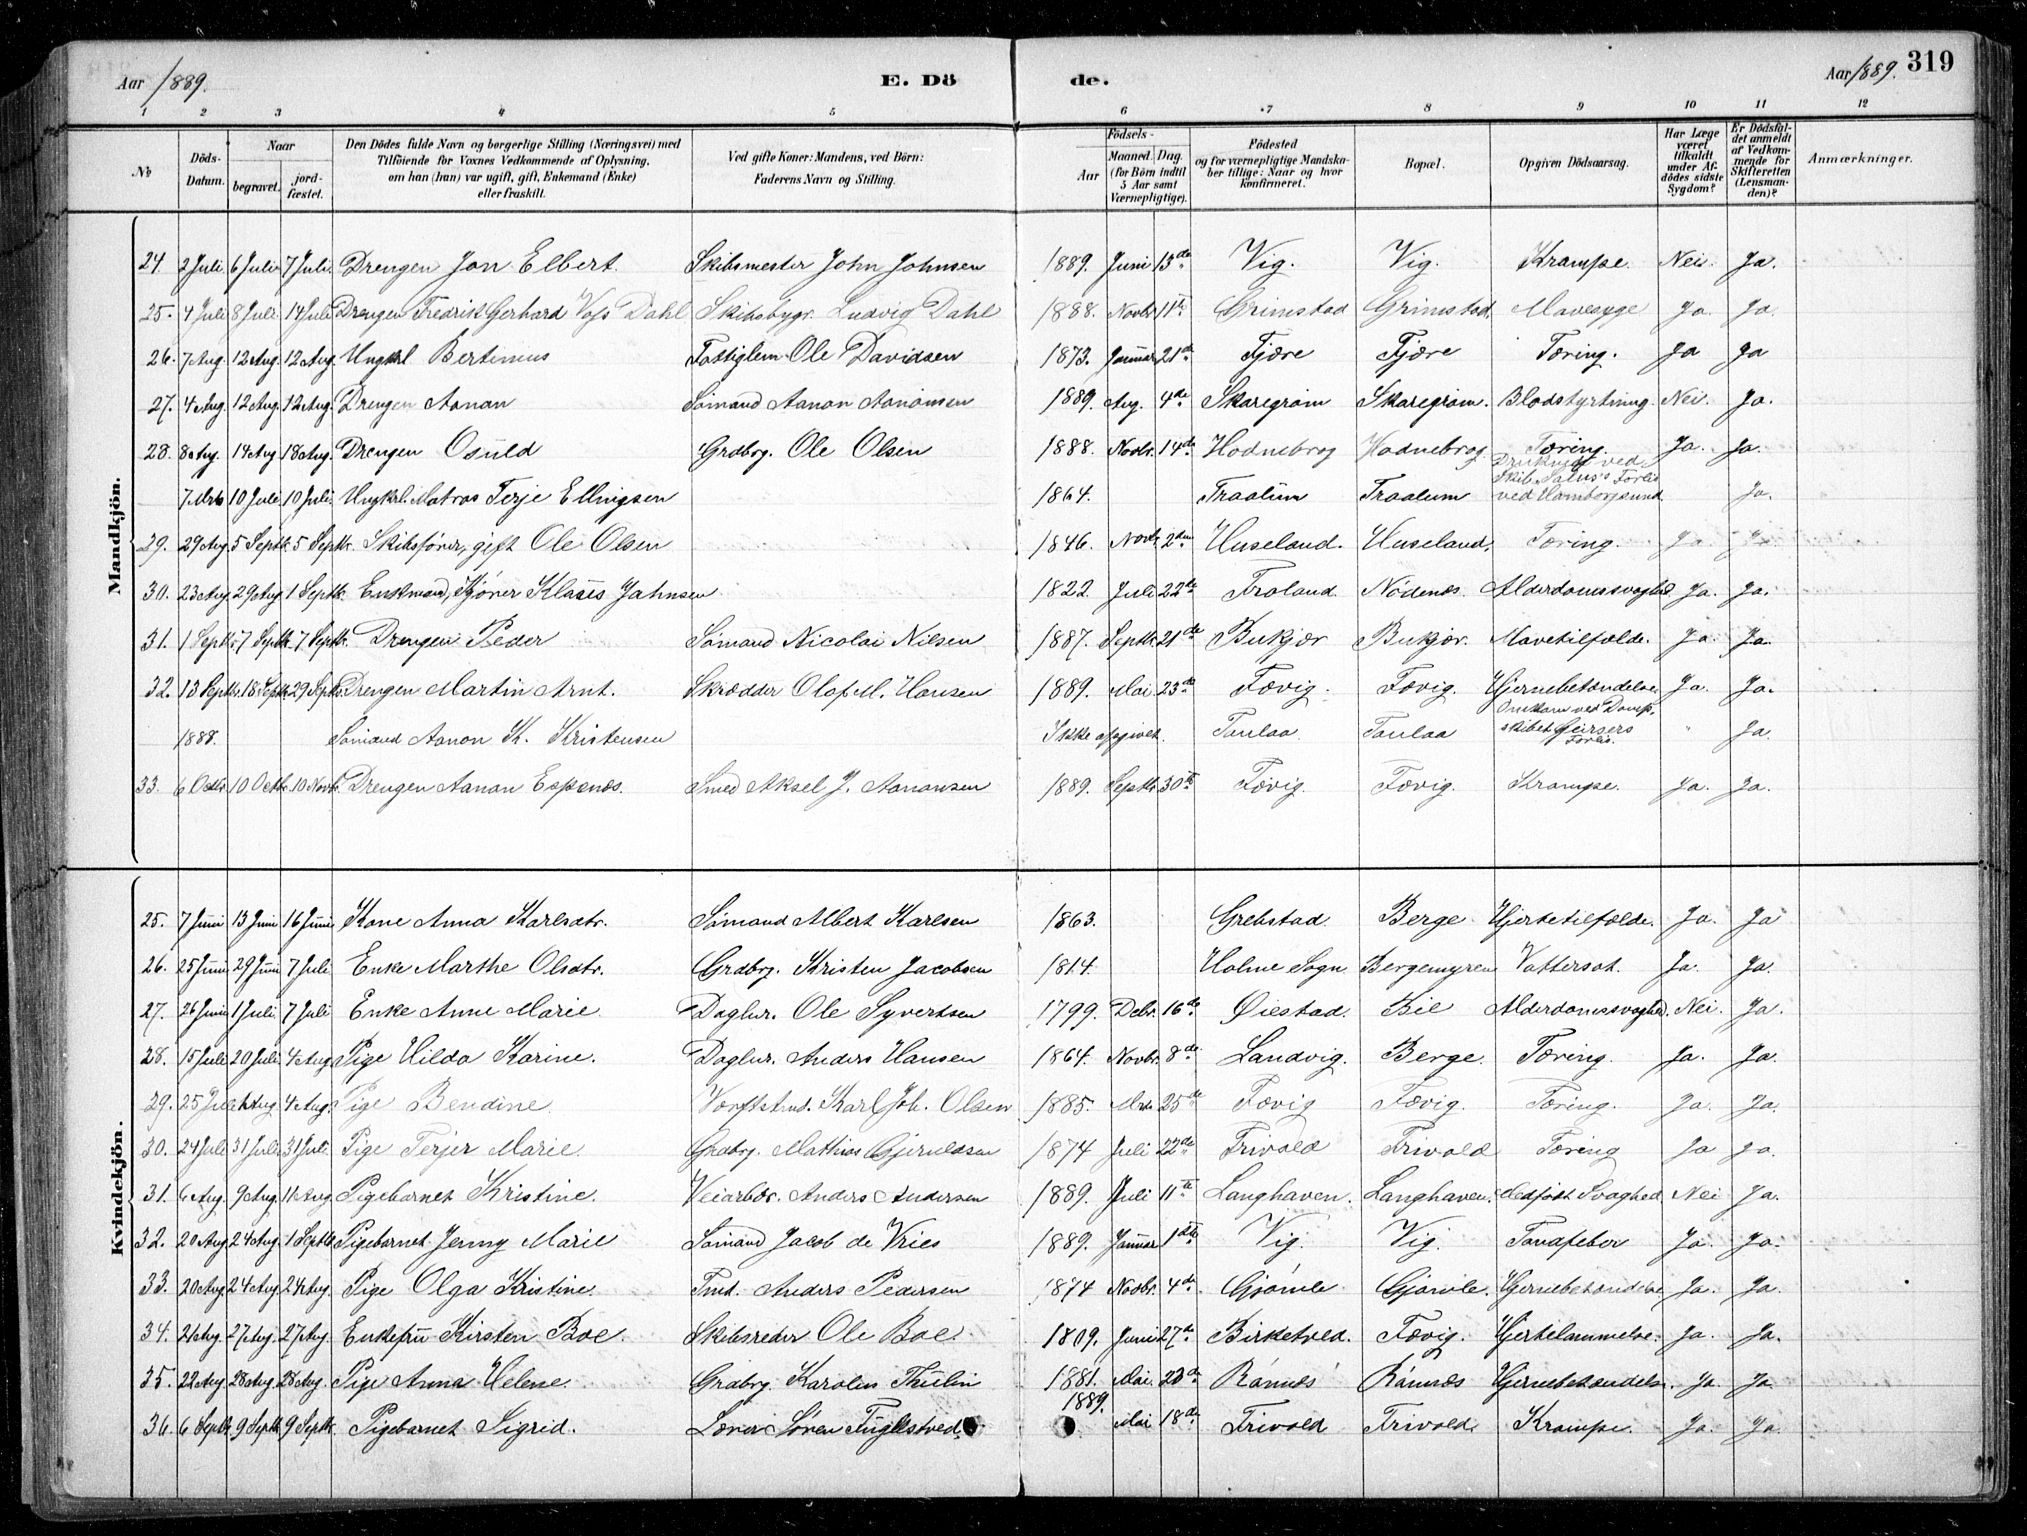 Aar 1889.
E. Dö
de.
Aar 1889. 319
1 2 3 4 5 6 7 8 9 10 11 12
No
Döds-Datum.
Naar
begravet.
jord-fæstet.
Den Dödes fulde Navn og borgerlige Stilling (Næringsvei) med
Tilföiende for Voxnes Vedkommende af Oplysning,
om han (hun) var ugift, gift, Enkemand (Enke)
eller fraskilt.
Ved gifte Koner: Mandens, ved Börn:
Faderens Navn og Stilling.
Födsels-
Aar
Maaned. Dag.
(for Börn indtil
5 Aar samt
Værnepligtige).
Födested
og for værnepligtige Mandska-
ber tillige: Naar og hvor
konfirmeret.
Bopæl.
Opgiven Dödsaarsag.
Har Læge
været
tilkaldt
under Af-
dödes sidste
Sygdom?
Er Dödsfal-
det anmeldt
af Vedkom-
mende for
Skifteretten
(Lensman-
den)?
Anmærkninger.
Mandkjön.
24 2 Juli 6 Juli 7 Juli Drengen Jon Elbert. Skibsmester John Johnsen 1889. Juni 13de Vig. Vig. Krampe. Nei. Ja.
25. 4 Juli 8 Juli 14 Juli Drengen Fredrik Gerhard Voss Dahl Skibsbygr. Ludvig Dahl 1888. Novbr 11te Grimstad Grimstad. Mavesyge Ja. Ja.
26. 7 Aug. 12 Aug. 12 Aug. Ungkrl Bertinius Fattiglem Ole Davidsen 1873. Januar 21de Fjære Fjære Tæring. Ja Ja
27. 4 Aug. 12 Aug. 12 Aug. Drengen Aanon Sömand Aanon Aanonsen 1889. Aug. 4de Skaregrøm Skaregrøm. Blodstyrtning. Nei. Ja.
28. 8 Aug. 14 Aug 18 Aug. Drengen Osuld Grdbrg. Ole Olsen 1888. Novbr. 14de Hodnebrog Hodnebrog Tæring. Ja. Ja.
7 Mrts 10 Juli 10 Juli Ungkrl. Matros Terje Ellingsen 1864. Traalum Traalum Druknede ved
Skib Salus's Forlis
ved Homborgsund Ja.
29. 29 Aug. 5 Septbr. 5 Septbr. Skibsfører, gift Ole Olsen 1846. Novb. 2den Huseland. Huseland. Tæring. Ja. Ja.
30. 23 Aug. 29 Aug. 1 Septbr. Enkmand, Klaus Jahnsen 1822. Juli 22de Froland Nödenes Alderdomssvaghed Ja. Ja.
31. 1 Septbr 7 Septbr. 7 Septbr. Drengen Peder Sömand Nicolai Nilsen 1887. Septbr. 21de Bukjær Bukjær. Mavetilfælde. Ja. Ja.
32. 13 Septbr. 18 Septbr. 29 Septbr. Drengen Martin Arnt. Skrædder Olaf M. Hansen 1889. Mai 23de Fævig. Fævig. Hjernebetændelse Ja. Ja.
1888. Sömand Aanon K. Kristensen Ikke opgivet. Taulaa Taulaa Omkom ved Damp-
skibet Geirsers
Forlis. " Ja.
33. 6 Octbr. 10 Octbr. 10 Novbr. Drengen Aanon Espenæs. Smed Aksel J. Aanonsen 1889. Septbr. 30te Fævig. Fævig. Krampe. Ja. Ja.
Kvindekjön.
25. 7 Juni 13 Juni 16 Juni Kone Anna Karlsdtr. Sömand Albert Karlsen 1863. Grebstad Berge Hjertetilfælde. Ja. Ja
26. 25 Juni 29 Juni 7 Juli Enke Marthe Olsdtr. Grdbrg. Kristen Jacobsen 1814. Holme Sogn Bergemyren Vattersot. Ja. Ja.
27. 26 Juni 1 Juli 7 Juli Enke Anne Marie. Daglnr. Ole Syvertsen 1799. Debr. 16de Øiestad. Bie Alderdomssvaghed. Nei. Ja.
28. 15 Juli 20 Juli 4 Aug. Pige Hilda Karine. Daglnr. Anders Hansen 1864. Novbr. 8de Landvig. Berge. Tæring. Ja. Ja.
29. 25 Juli 1 Aug. 4 Aug. Pige Bendine. Værftstmd. Karl Joh. Olsen 1885. Mrts 25de Fævig Fævig. Tæring. Ja. Ja.
30. 24 Juli 31 Juli 31 Juli Pige Terjer Marie Grdbrg. Mathias Gjeruldsen 1874 Juli 22de Frivold Frivold Tæring Ja Ja.
31. 6 Aug. 9 Aug. 11 Aug. Pigebarnet Kristine. Veiarbdr. Anders Andersen 1889. Juli 11te Langhaven. Langhaven. Medfödt Svaghed Nei Ja.
32. 20 Aug. 24 Aug. 1 Septbr Pigebarnet Jenny Marie Sömand Jacob de Vries 1889. Januar 1ste Vig. Vig. Tandfeber Ja. Ja.
33. 20 Aug 24 Aug 24 Aug. Pige Olga Kristine. Tmd. Anders Pedersen 1874 Novbr. 4de Gjömle Gjömle. Hjernebetændelse Ja. Ja.
34. 21 Aug. 27 Aug. 27 Aug. Enkefru Kirsten Boe. Skibsreder Ole Boe. 1809. Juni 27de Birketved. Fævig. Hjertelammelse. Ja. Ja.
35. 22 Aug 28 Aug. 28 Aug. Pige Anna Helene. Grdbrg. Karolius Thulin 1881. Mai. 23de Rönnes Rönnes Hjernebetændelse. Ja. Ja.
36. 6 Septbr 9 Septbr 9 Septbr. Pigebarnet Sigrid. Lærer Sören Fuglestved 1889. Mai 18de Frivold Frivold. Krampe. Ja. Ja.